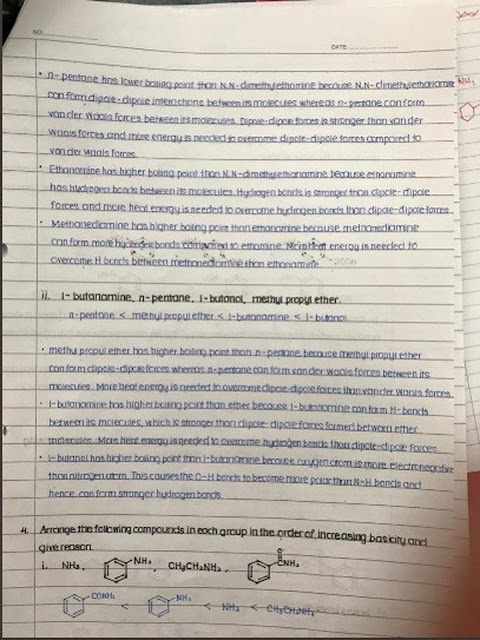 NO:
DATE:
• n-pentane has lower boiling point than N.N-dimethylethanamine because N.N-dimethylethanamine
can form dipole-dipole interactions between its molecules whereas n-pentane can form
van der Waals forces between its molecules. Dipole-dipole forces is stronger than van der
Waals forces and more energy is needed to overcome dipole-dipole forces compared to
van der Waals forces.
• Ethanamine has higher boiling point than N.N-dimethylethanamine because ethanamine
has hydrogen bonds between its molecules. Hydrogen bonds is stronger than dipole-dipole
forces and more heat energy is needed to overcome hydrogen bonds than dipole-dipole forces.
• Methanediamine has higher boiling point than ethanamine because methanediamine
can form more hydrogen bonds compared to ethanamine. More heat energy is needed to
overcome H bonds between methanediamine than ethanamine.
ii. 1-butanamine, n-pentane, 1-butanol, methyl propyl ether.
n-pentane < methyl propyl ether < 1-butanamine < 1-butanol
• methyl propyl ether has higher boiling point than n-pentane because methyl propyl ether
can form dipole-dipole forces whereas n-pentane can form van der Waals forces between its
molecules. More heat energy is needed to overcome dipole-dipole forces than van der Waals forces.
• 1-butanamine has higher boiling point than ether because 1-butanamine can form H-bonds
between its molecules, which is stronger than dipole-dipole forces formed between ether
molecules. More heat energy is needed to overcome hydrogen bonds than dipole-dipole forces
• 1-butanol has higher boiling point than 1-butanamine because oxygen atom is more electronegative
than nitrogen atom. This causes the O-H bonds to become more polar than N-H bonds and
hence, can form stronger hydrogen bonds.
4. Arrange the following compounds in each group in the order of increasing basicity and
give reason.
i. NH₃, NH₂, CH₃CH₂NH₂, O CNH₂
CONH₂ < NH₂ < NH₃ < CH₃CH₂NH₂